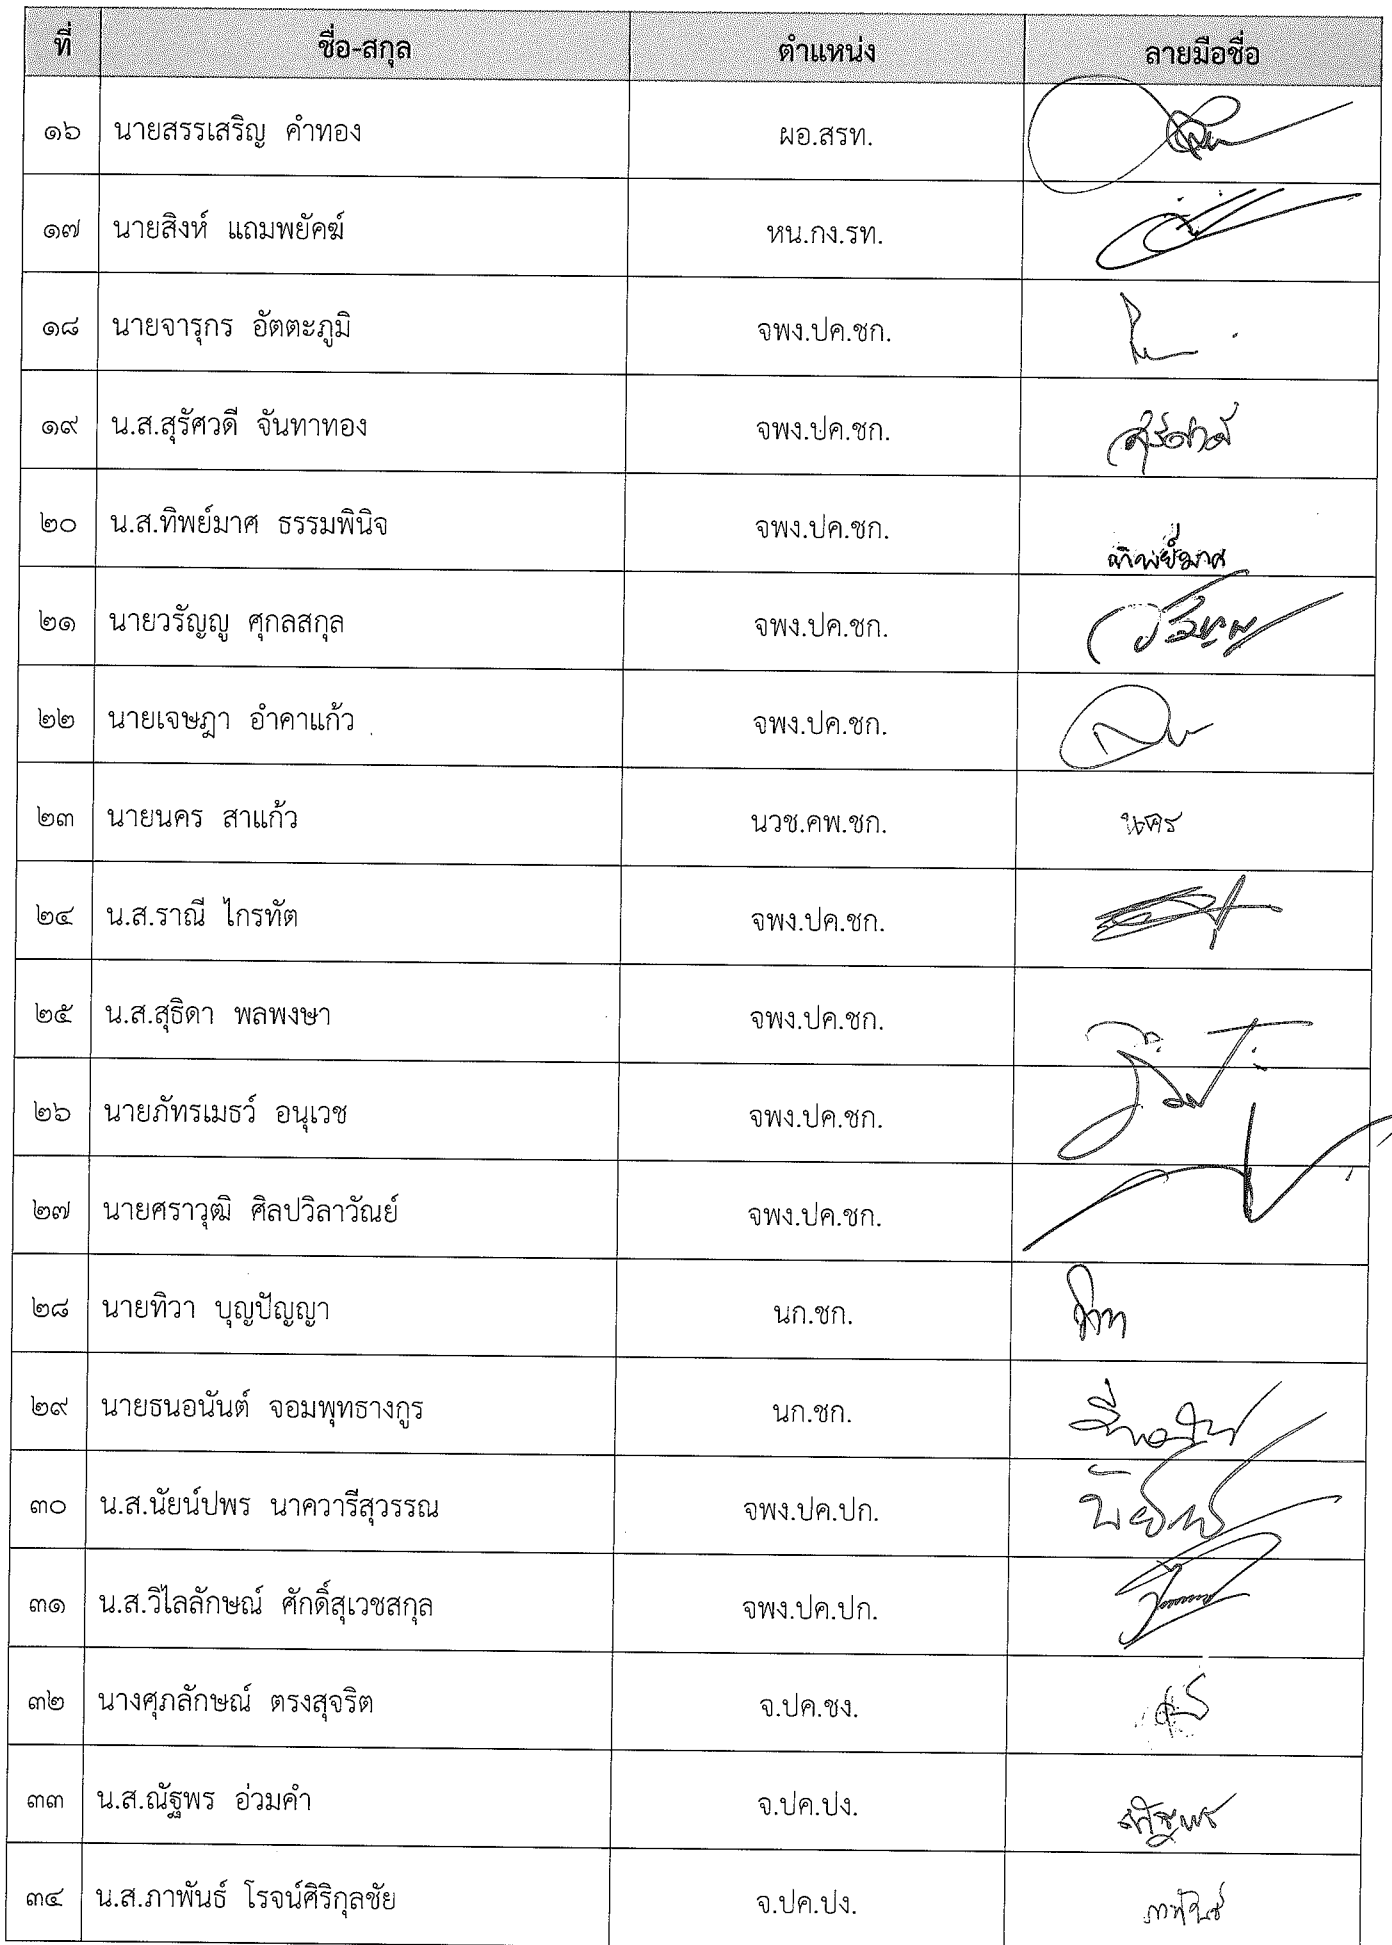 ที่ ชื่อ-สกุล ตำแหน่ง ลายมือชื่อ
๑๖ นายสรรเสริญ คำทอง ผอ.สรท.
๑๗ นายสิงห์ แถมพยัคฆ์ หน.กง.รท.
๑๘ นายจารุกร อัตตะภูมิ จพง.ปค.ชก.
๑๙ น.ส.สุรัศวดี จันทาทอง จพง.ปค.ชก.
๒๐ น.ส.ทิพย์มาศ ธรรมพินิจ จพง.ปค.ชก. ทิพย์มาศ
๒๑ นายวรัญญู ศุกลสกุล จพง.ปค.ชก.
๒๒ นายเจษฎา อำคาแก้ว จพง.ปค.ชก.
๒๓ นายนคร สาแก้ว นวช.คพ.ชก. นคร
๒๔ น.ส.ราณี ไกรทัต จพง.ปค.ชก.
๒๕ น.ส.สุธิดา พลพงษา จพง.ปค.ชก.
๒๖ นายภัทรเมธว์ อนุเวช จพง.ปค.ชก.
๒๗ นายศราวุฒิ ศิลปวิลาวัณย์ จพง.ปค.ชก.
๒๘ นายทิวา บุญปัญญา นก.ชก.
๒๙ นายธนอนันต์ จอมพุทธางกูร นก.ชก.
๓๐ น.ส.นัยน์ปพร นาควารีสุวรรณ จพง.ปค.ปก.
๓๑ น.ส.วิไลลักษณ์ ศักดิ์สุเวชสกุล จพง.ปค.ปก.
๓๒ นางศุภลักษณ์ ตรงสุจริต จ.ปค.ชง.
๓๓ น.ส.ณัฐพร อ่วมคำ จ.ปค.ปง. ณัฐพร
๓๔ น.ส.ภาพันธ์ โรจน์ศิริกุลชัย จ.ปค.ปง. ภาพันธ์